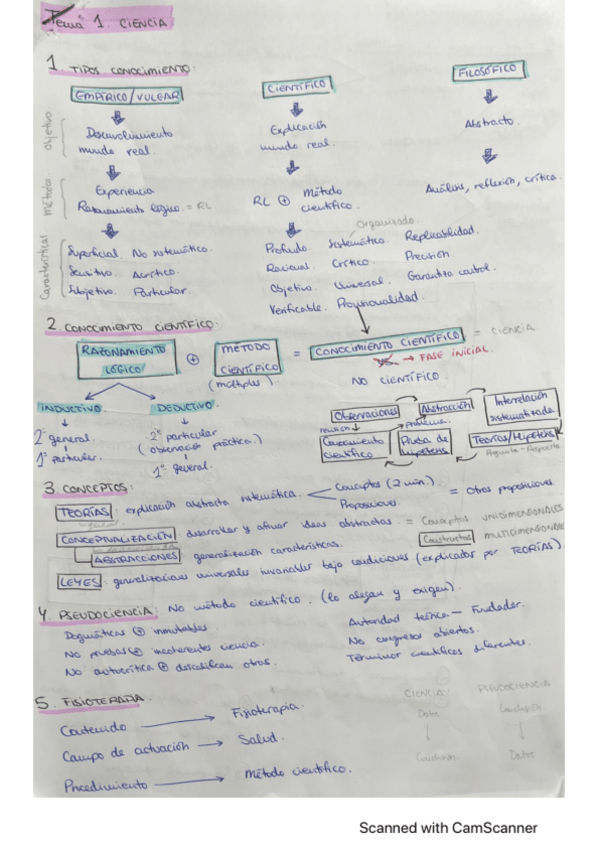 Tema 1. CIENCIA
1. TIPOS CONOCIMIENTO:
EMPÍRICO/VULGAR
CIENTÍFICO
FILOSÓFICO
Objetivo
Desenvolvimiento mundo real.
Explicación mundo real.
Abstracto.
Método
Experiencia
Razonamiento lógico = RL
RL ⊕ Método científico.
Análisis, reflexión, crítica.
Características
Superficial. No sistemático.
Sensitivo. Acrítico.
Subjetivo. Particular.
Organizado.
Profundo. Sistemático. Replicabilidad.
Racional. Crítico. Precisión.
Objetivo. Universal. Garantiza control.
Verificable. Provisionalidad.
2. CONOCIMIENTO CIENTÍFICO:
RAZONAMIENTO LÓGICO ⊕ MÉTODO CIENTÍFICO (múltiples) = CONOCIMIENTO CIENTÍFICO = CIENCIA
vs. → FASE INICIAL.
NO CIENTÍFICO.
INDUCTIVO
DEDUCTIVO
2º general.
1º particular.
2º particular (observación práctica.)
1º general.
Observaciones → Abstracción → Interrelación sistematizada
revisión
problema
Conocimiento científico
Prueba de hipótesis
Teorías/Hipótesis
Pregunta - Respuesta
3. CONCEPTOS:
TEORÍAS: explicación abstracta sistemática. Conceptos (2 mín.) Proposiciones = Otras proposiciones
CONCEPTUALIZACIÓN desarrollar y afinar ideas abstractas = Conceptos UNIDIMENSIONALES
Constructos MULTIDIMENSIONALES
ABSTRACCIONES: generalización características.
LEYES: generalizaciones universales invariables bajo condiciones (explicados por TEORÍAS).
4. PSEUDOCIENCIA: No método científico. (lo alegan y exigen).
Dogmáticas ⊕ inmutables. Autoridad teórica - Fundador.
No pruebas ⊕ incoherentes ciencia. No congresos abiertos.
No autocrítica ⊕ descalifican otros. Términos científicos diferentes.
5. FISIOTERAPIA.
Contenido → Fisioterapia.
Campo de actuación → Salud.
Procedimiento → Método científico.
CIENCIA
PSEUDOCIENCIA
Datos
Conclusión
Conclusión
Datos
Scanned with CamScanner